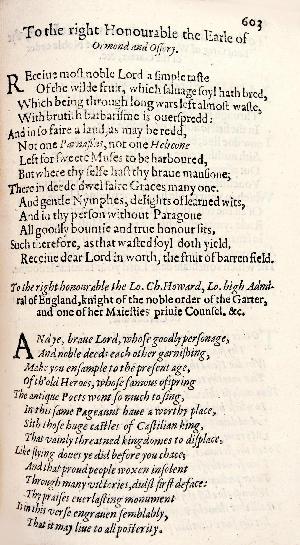 603
To the right Honourable the Earle of
Ormond and Ossory.
REceiue most noble Lord a simple taste
Of the wilde fruit, which saluage soyl hath bred,
Which being through long wars left almost waste,
With brutish barbarisme is ouerspredd:
And in so faire a land, as may be redd,
Not one Parnassus, nor one Helicone
Left for sweete Muses to be harboured,
But where thy selfe hast thy braue mansione;
There in deede dwel faire Graces many one.
And gentle Nymphes, delights of learned wits,
And in thy person without Paragone
All goodly bountie and true honour sits,
Such therefore, as that wasted soyl doth yield,
Receiue dear Lord in worth, the fruit of barren field.
To the right honourable the Lo. Ch. Howard, Lo. high Admi-
ral of England, knight of the noble order of the Garter,
and one of her Maiesties priuie Counsel, &c.
ANd ye, braue Lord, whose goodly personage,
And noble deeds each other garnishing,
Make you ensample to the present age,
Of th'old Heroes, whose famous ofspring
The antique Poets wont so much to sing,
In this same Pageaunt haue a worthy place,
Sith those huge castles of Castilian king,
That vainly threatned kingdomes to displace,
Like flying doues ye did before you chace;
And that proud people woxen insolent
Through many victories, didst first deface:
Thy praises euerlasting monument
Is in this verse engrauen semblably,
That it may liue to all posterity.